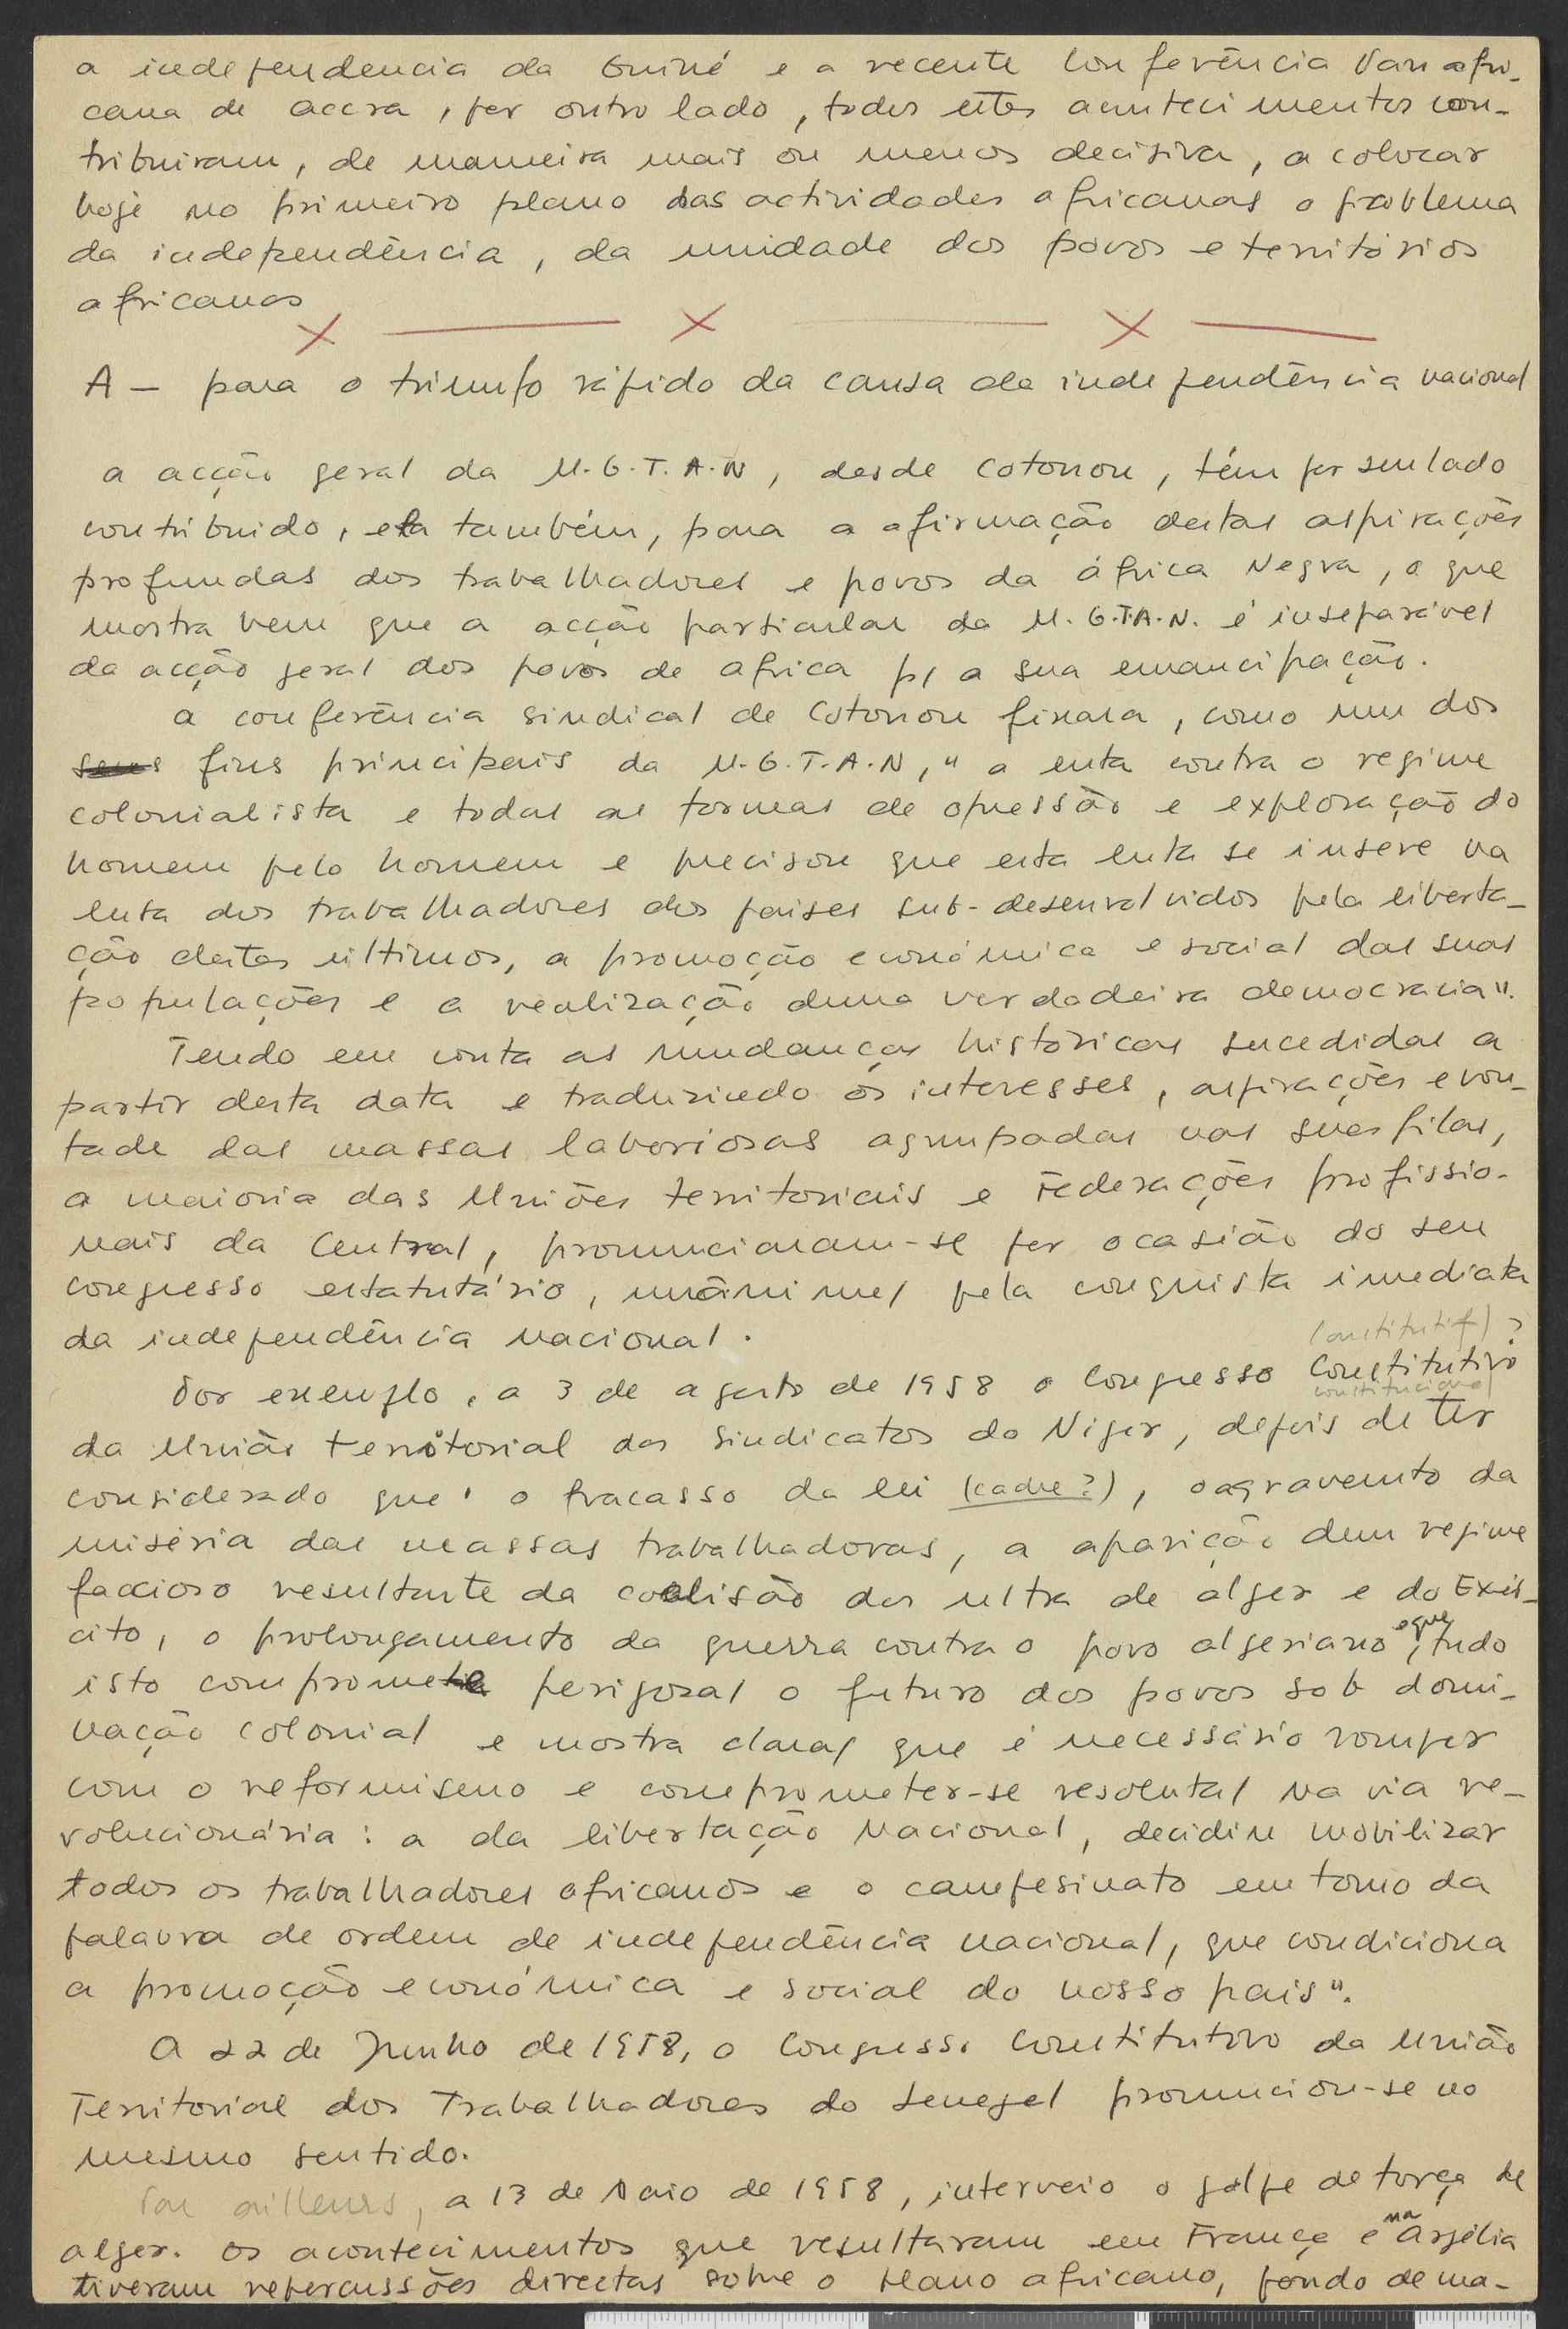 a independencia da Guiné e a recente Conferência Pan afri-
cana de accra, por outro lado, todos estes acontecimentos con-
tribuiram, de maneira mais ou menos decisiva, a colocar
hoje no primeiro plano das actividades africanas o problema
da independência, da unidade dos povos e territórios
africanos
X — X — X —
A — para o triunfo rápido da causa da independência nacional
a acção geral da U.G.T.A.N, desde Cotonou, têm por seu lado
contribuido, ela também, para a afirmação destas aspirações
profundas dos trabalhadores e povos da áfrica Negra, o que
mostra bem que a acção particular da U.G.T.A.N. é inseparável
da acção geral dos povos de africa p/ a sua emancipação.
a conferência sindical de Cotonou fixara, como um dos
seus fins principais da U.G.T.A.N, " a luta contra o regime
colonialista e todas as formas de opressão e exploração do
homem pelo homem e precisou que esta luta se insere na
luta dos trabalhadores dos paises sub-desenvolvidos pela liberta-
ção destes últimos, a promoção económica e social das suas
populações e a realização duma verdadeira democracia".
Tendo em conta as mudanças históricas sucedidas a
partir desta data e traduzindo os interesses, aspirações e von-
tade das massas laboriosas agrupadas nas suas filas,
a maioria das Uniões territoriais e Federações profissio-
nais da Central, pronunciaram-se por ocasião do seu
congresso estatutário, unânime/ pela conquista imediata
da independência nacional.
(constitutif) ?
Por exemplo, a 3 de agosto de 1958 o Congresso Constitutivo
constitucional
da União territorial dos Sindicatos do Niger, depois de ter
considerado que " o fracasso da lei (cadre?), o agravamento da
miséria das massas trabalhadoras, a aparição dum regime
faccioso resultante da coalisão dos ultra de alger e do Exér-
cito, o prolongamento da guerra contra o povo algeriano, e que tudo
isto compromete perigosa/ o futuro dos povos sob domi-
nação colonial e mostra clara/ que é necessário romper
com o reformismo e comprometer-se resoluta/ na via re-
volucionária: a da libertação Nacional, decidiu mobilizar
todos os trabalhadores africanos e o campesinato em torno da
palavra de ordem de independência nacional, que condiciona
a promoção económica e social do nosso pais".
A 22 de Junho de 1958, o Congresso constitutivo da União
Territorial dos Trabalhadores do Senegal pronunciou-se no
mesmo sentido.
Par ailleurs, a 13 de Maio de 1958, interveio o golpe de força de
alger. Os acontecimentos que resultaram em França e na Argélia
tiveram repercussões directas sobre o plano africano, pondo de ma-